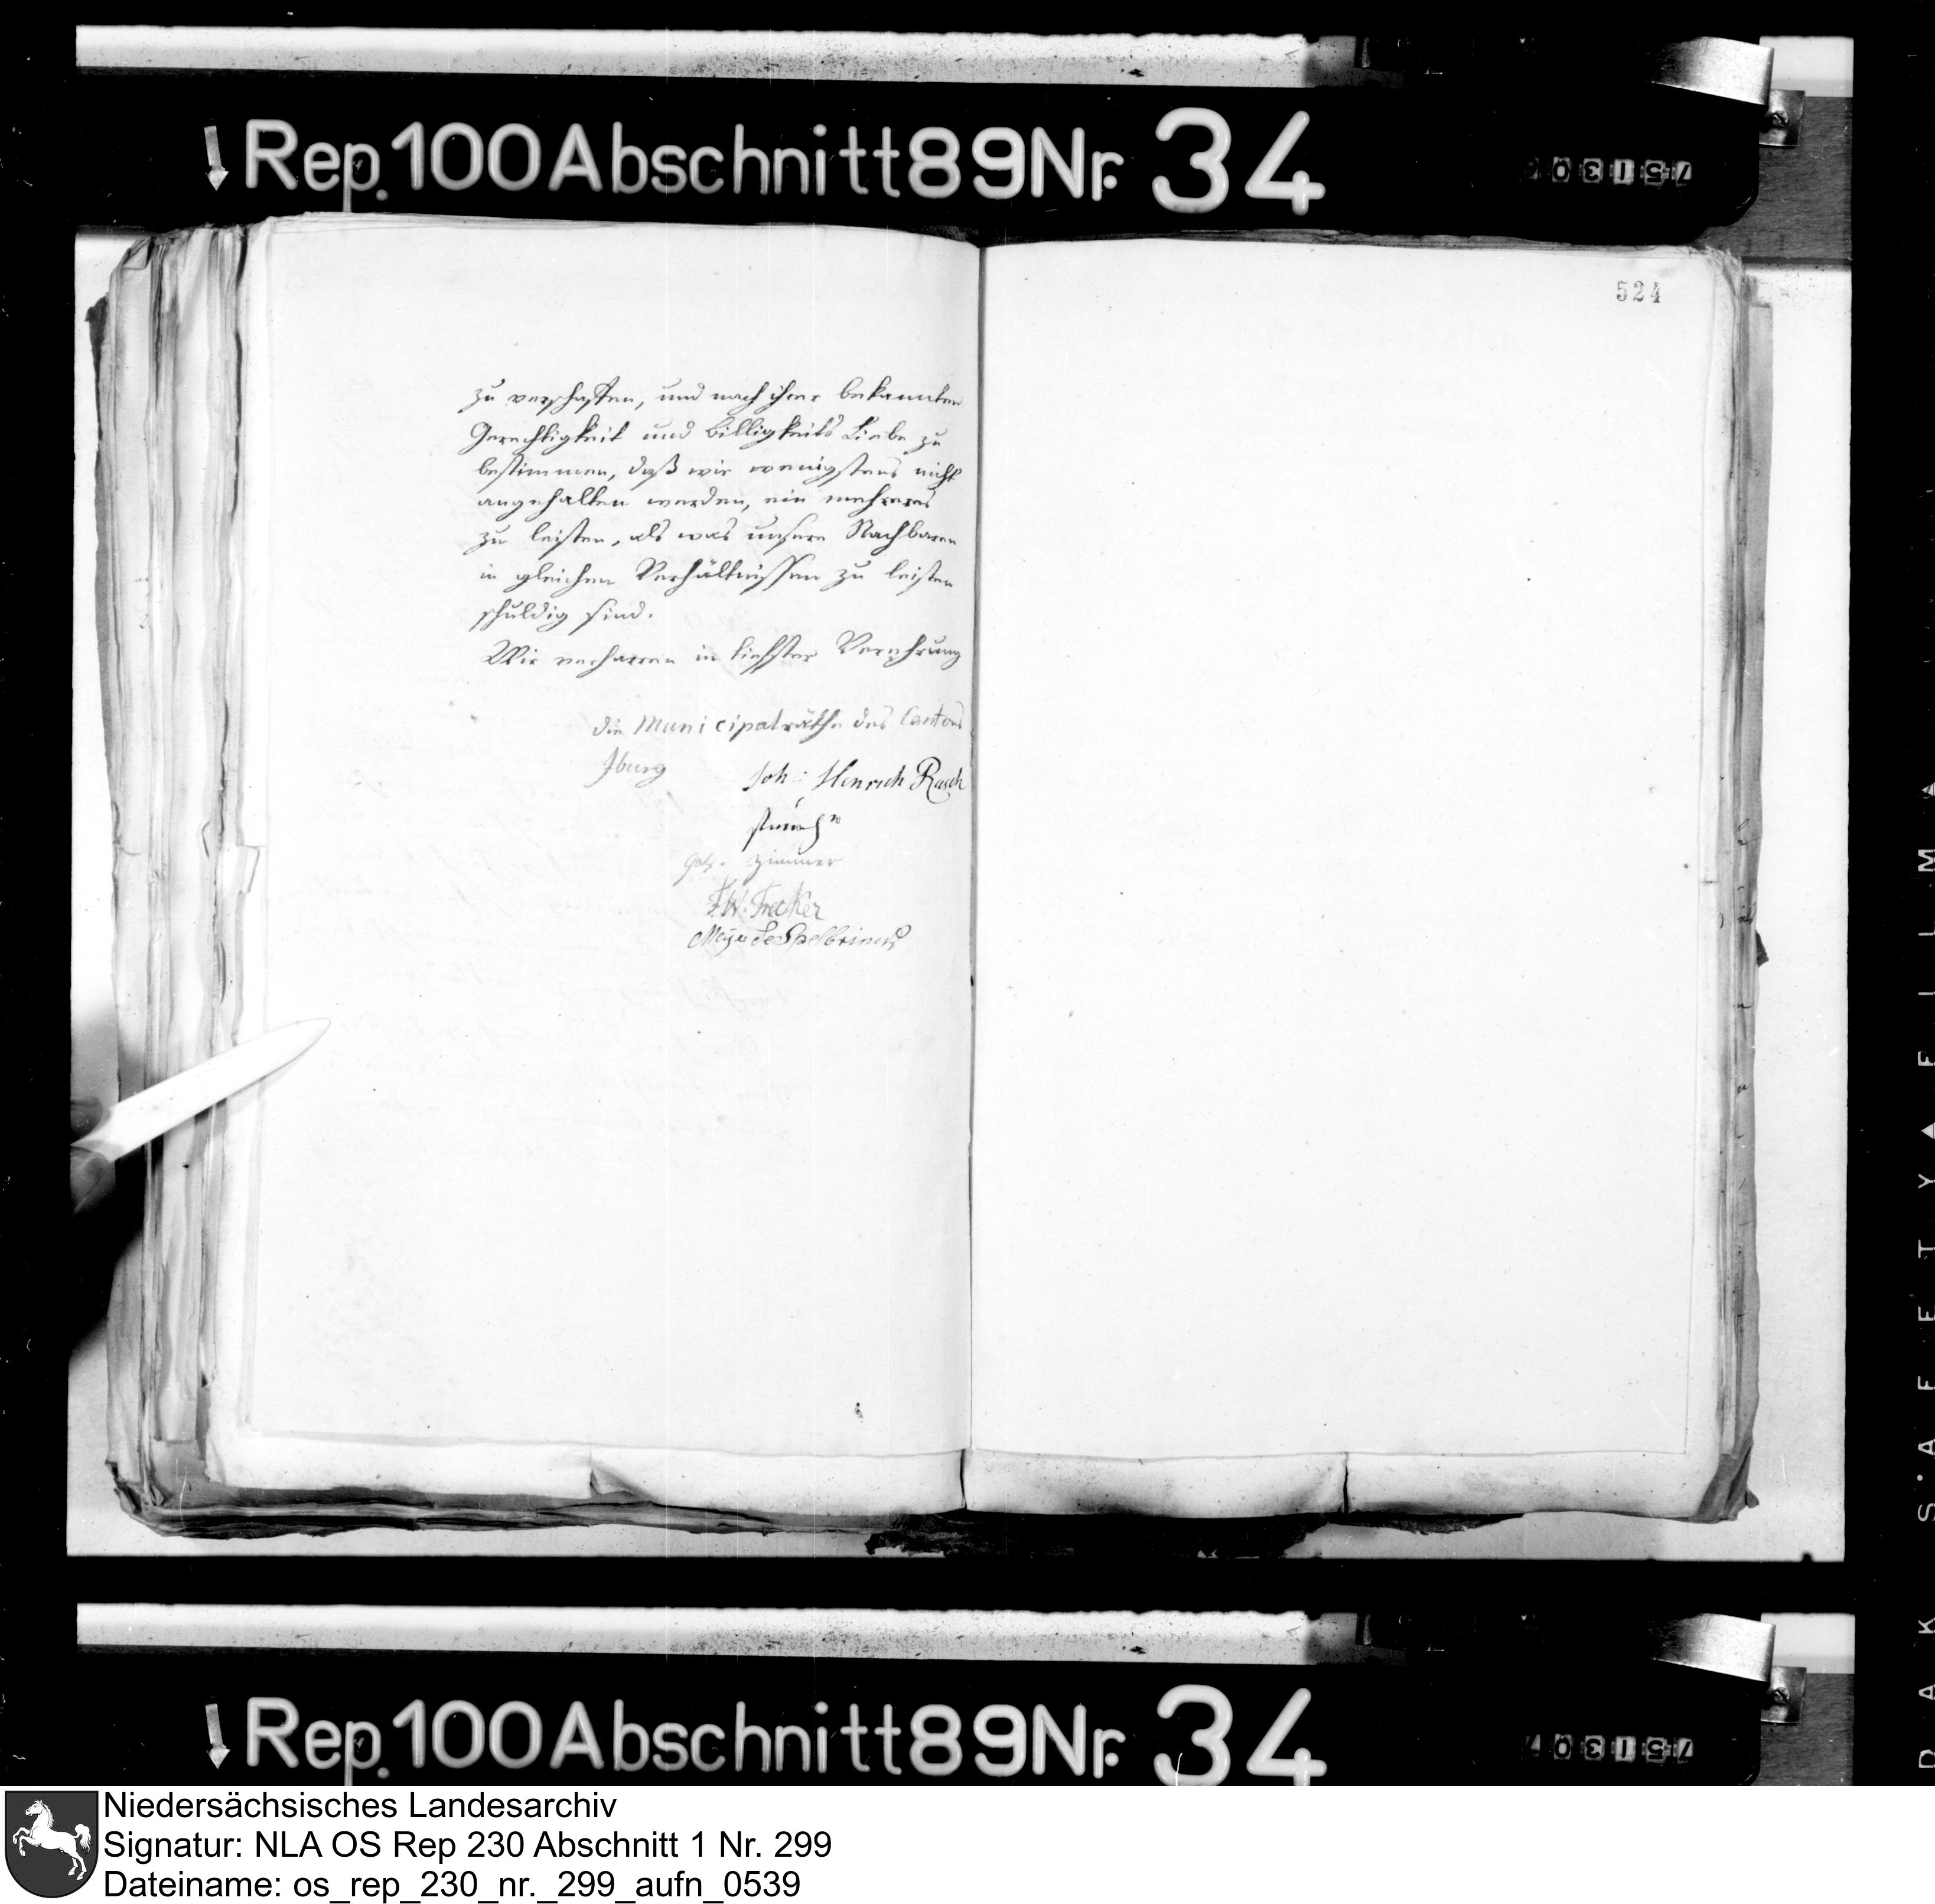 Rep. 100 Abschnitt 89 Nr. 34
524
zu verschaffen, und nach ihrer bekannten
Gerechtigkeit und Billigkeits Liebe zu
bestimmen, daß wir wenigstens nicht
angehalten werden, ein mehreres
zu leisten, als was unsere Nachbaren
in gleichen Verhältnissen zu leisten
schuldig sind.
Wir verharren in tiefster Verehrung
die Municipalräthe des Cantons
Iburg
Joh: Henrich Rasch
Zimmer
F.W. Trecker
Meyer
Rep. 100 Abschnitt 89 Nr. 34
SAFETY FILM
Niedersächsisches Landesarchiv
Signatur: NLA OS Rep 230 Abschnitt 1 Nr. 299
Dateiname: os_rep_230_nr._299_aufn_0539